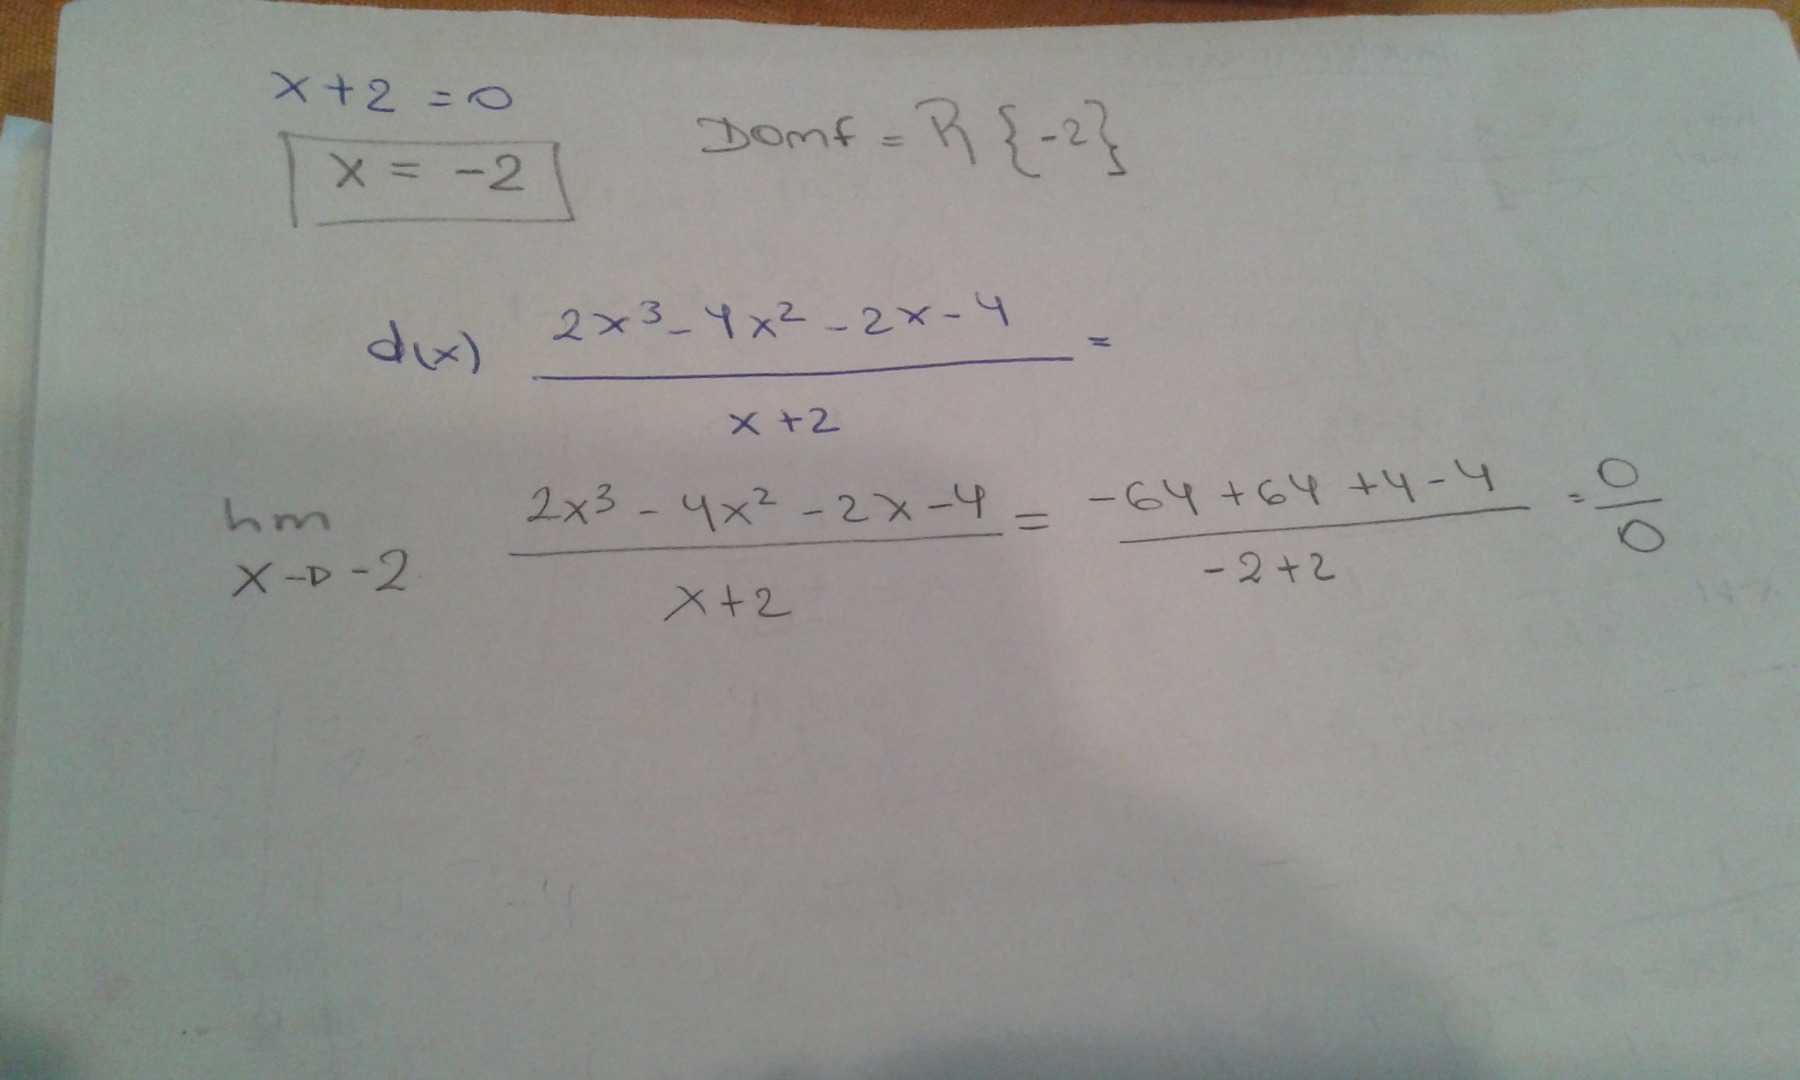 x+2 = 0
x = -2
Domf = R {-2}
d(x) 2x³-4x²-2x-4 =
x+2
lim 2x³-4x²-2x-4 = -64+64+4-4 = 0
x→-2 x+2 -2+2 0